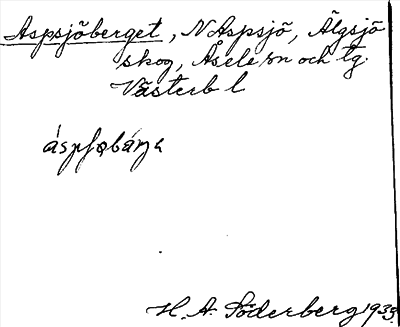 Aspsjöberget, N Aspsjö, Älgsjö
skog, Åsele sn och tg
Västerb l
H. A. Söderberg 1933.